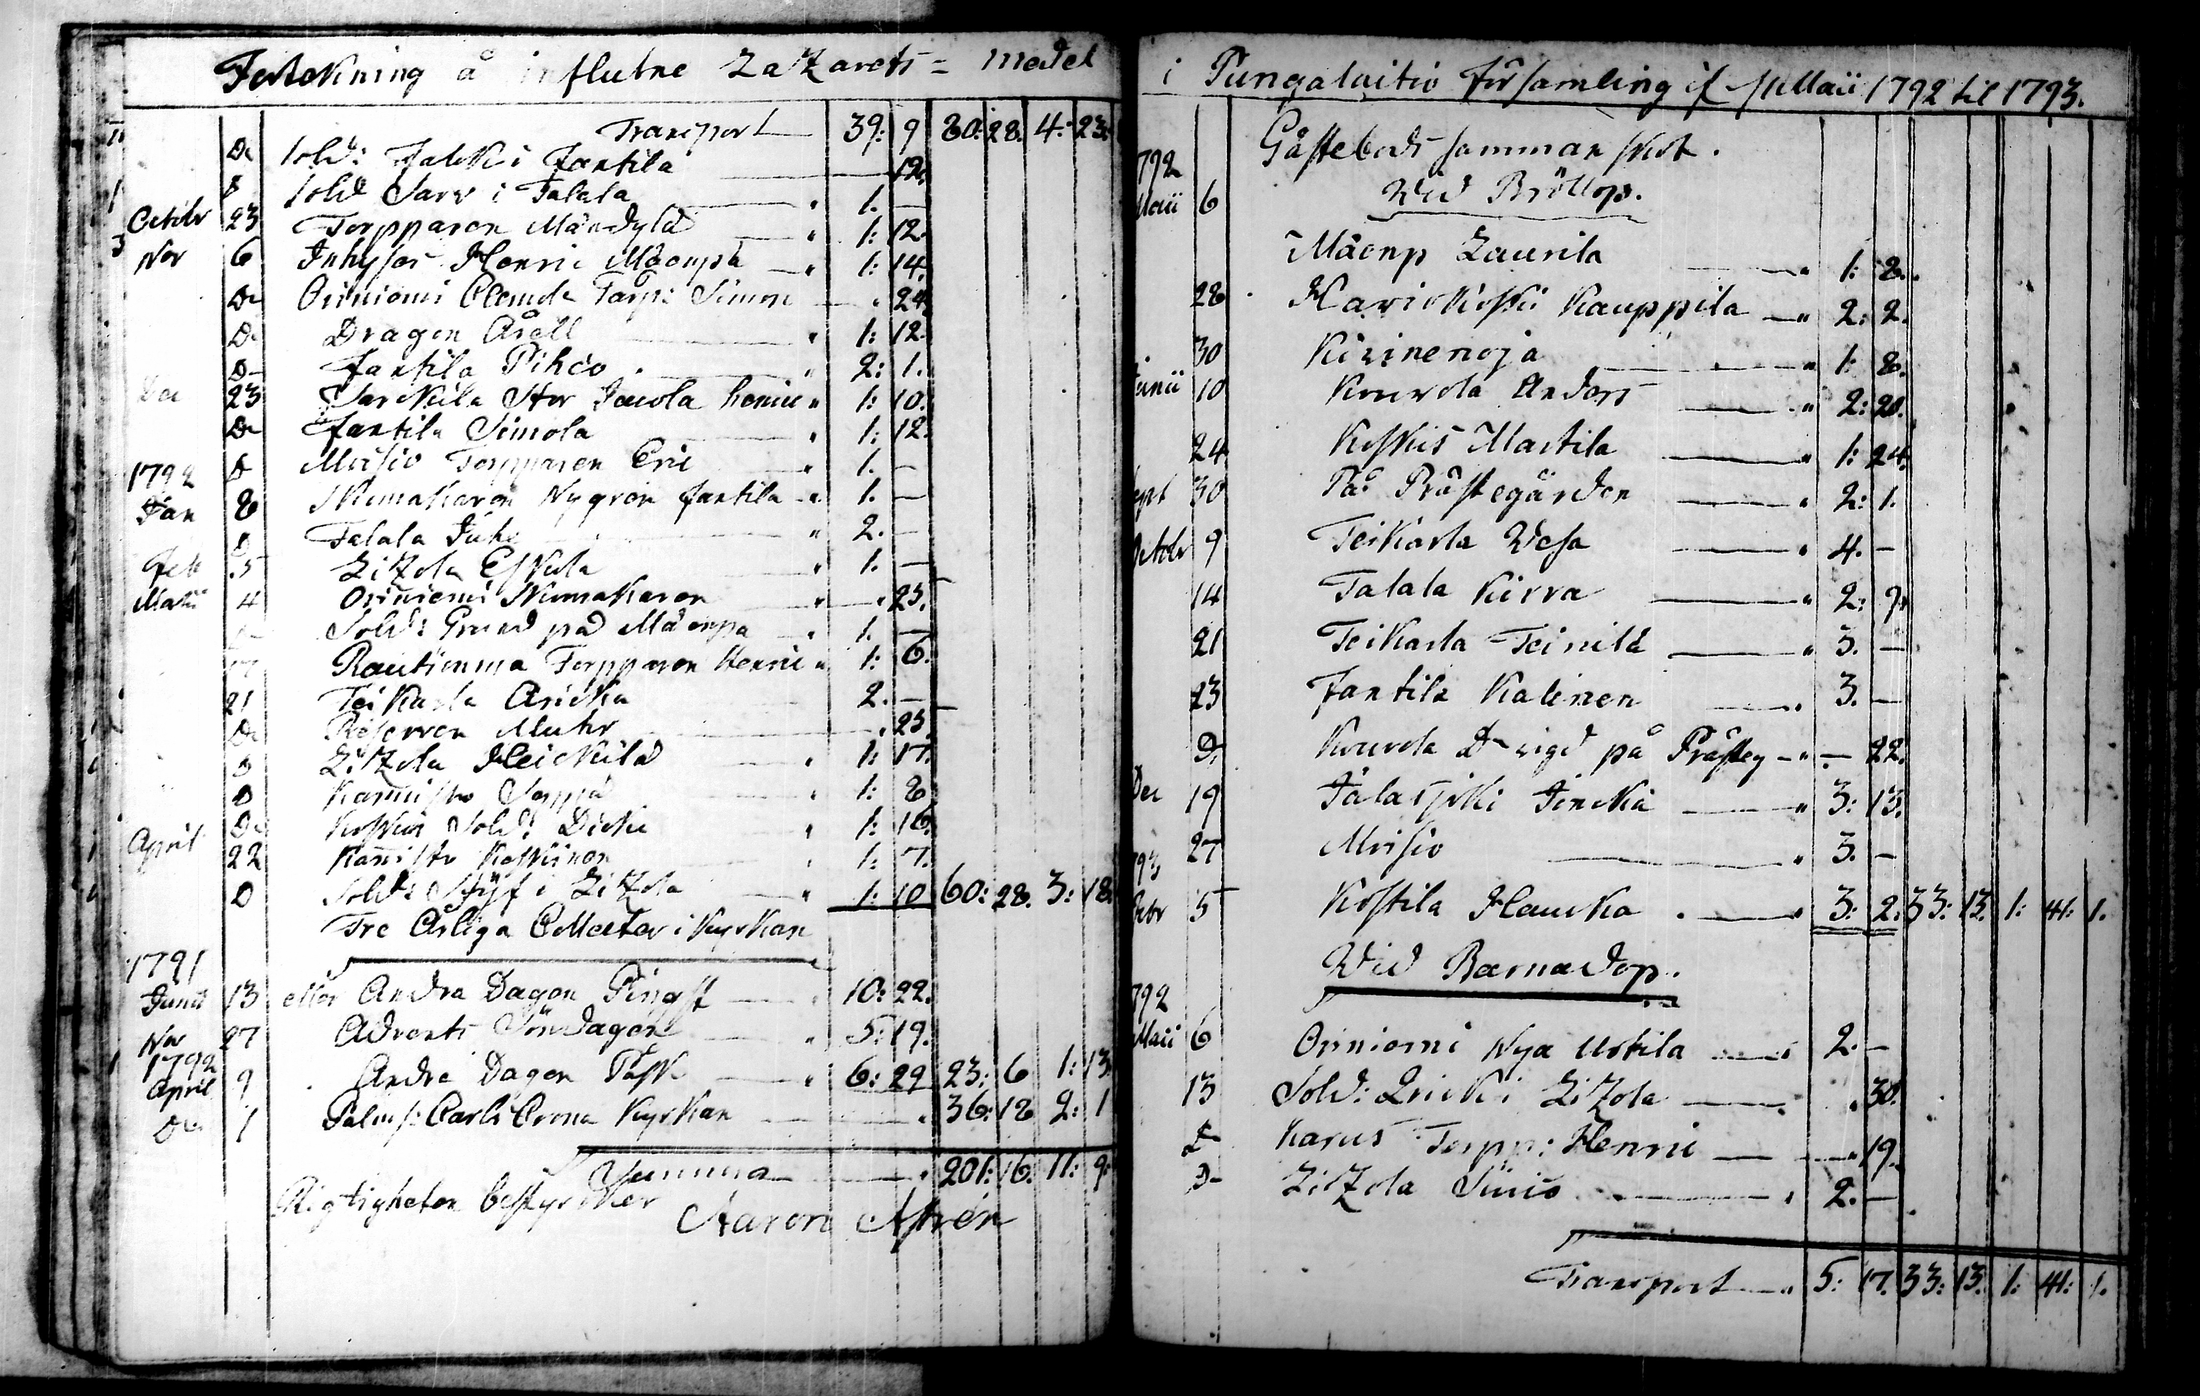 Förtekning å influtne Lazarets = medel
Transport 39: 9 80: 28. 4: 23.
Do Sold: Falck i Jantila 12.
D Sold Sarv i Talala 1. —
Octobr 23 Torpparen Mäendylä 1: 12.
Nov 6 Inhyses Henric Mäenpä 1: 14.
Do Oriniemi Clemola Torp: Simon 24.
Do Dragon Aroll 1: 12.
D Jantila Pihco 2: 1.
Dec 23 Sarkila Stor Jauola henric 1: 10.
Do Jantila Simola 1: 12.
1792 D Moisio Torpparen Eric 1. —
Jan 8 Skomakaren Nygren Jantila 1. —
D Talala Juho 2. —
Feb 5 Litzola Eskola 1. —
Martii 4 Oriniemi Skomakaren 25.
Sold: Grund på Mäenpä 1. —
Rautionma Torpparen Henric 1: 6.
21 Teikarla Aricka 2. —
Do Reserven Muhr 25.
D Litzola Heickilä 1: 17.
D Kannisto Seppä 1: 8
Do Koskis Sold: Dicke 1: 16.
April 22 Kannisto Koskinen 1: 7.
D Sold: Styf i Litzola 1: 10 60: 28. 3: 18.
Tre Årliga Collecter i Kyrkan
1791
Junii 13 eller Andra Dagen Pingst 10: 22.
Nov 27 Advents Söndagen 5: 19.
1792
April 9 Andra Dagen Påsk 6: 29 23: 6 1: 13
Do 1 Palmf: Carls Crona Kyrkan 36: 18 2: 1
Summa 201: 16. 11: 9.
Rigtigheten bestyrcker Aaron
i Pungalaitio församling if Maii 1792 til 1793.
Gästebods sammanskot.
792
Maii 6 Wid Bröllop.
Mäenp Laurila 1: 8.
28 Hariokoski Kauppila 2: 2.
30 Kirinenoja 1: 8.
Junii 10 Kouvola Anders 2: 20.
24 Koskis Martila 1: 24.
Sept 30 På Prästegården 2: 1.
Octobr 9 Teikarla Wesa 4. —
14 Talala Kirra 2: 9.
21 Teikarla Teinilä 3. —
23 Jantila Kalinen 3. —
D. Kouvola på Prästeg — 22.
Dec 19 Jalasjoki Jencka 3: 13.
27 Moisio 3. —
793
Febr 5 Kostila Haucka 3: 2. 33: 13. 1: 41: 1.
Wid Barnadop.
792
Maii 6 Oriniemi Nya Uotila 2. —
13 Sold: Qvick i Litzola 30.
D Karus Torpp: Henric 19.
D Litzola Sinis 2. —
Transport 5: 17. 33: 13. 1: 41: 1.